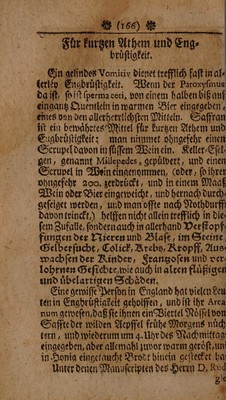 (166)
Für kurtzen Athem und Eng-
brüstigkeit.
Ein gelindes Vomitiv dienet trefflich fast in al-
lerley Engbrüstigkeit. Wenn der Paroxysmus
da ist, so ist sperma ceti, von einem halben biß auf
ein gantz Quentlein in warmen Bier eingegeben,
eines von den allerherrlichsten Mitteln. Saffran
ist ein bewährtes Mittel für kurtzen Athem und
Engbrüstigkeit: man nimmet ohngefehr einen
Scrupel davon in süssem Wein ein. Keller-Esel-
gen, genannt Millepedes, gepülvert, und einen
Scrupel in Wein eingenommen, (oder, so ihrer
ohngefehr 200. zerdrückt, und in einem Maaß
Wein oder Bier eingeweicht, und hernach durch-
geseiget werden, und man offte nach Nothdurfft
davon trinckt,) helffen nicht allein trefflich in die-
sem Zufalle, sondern auch in allerhand Verstopf-
fungen der Nieren und Blase, im Seitne
Gelbersucht, Colick, Krebs, Kropff, Aus-
wachsen der Kinder, Frantzosen und ver-
lohrnen Gesichte, wie auch in alten flüßigen
und übelartigen Schäden.
Eine gewisse Person in England hat vielen Leu-
ten in Engbrüstigkeit geholffen, und ist ihr Arca-
num gewesen, daß sie ihnen ein Viertel Nössel von
Saffte der wilden Aepffel frühe Morgens nüch-
tern, und wiederum um 4. Uhr des Nachmittags
eingegeben, aber allemahl zuvor warm geröst, und
in Honig eingetaucht Brodt hinein gesteckt hat
Unter denen Manuscripten des Herrn D. Rud